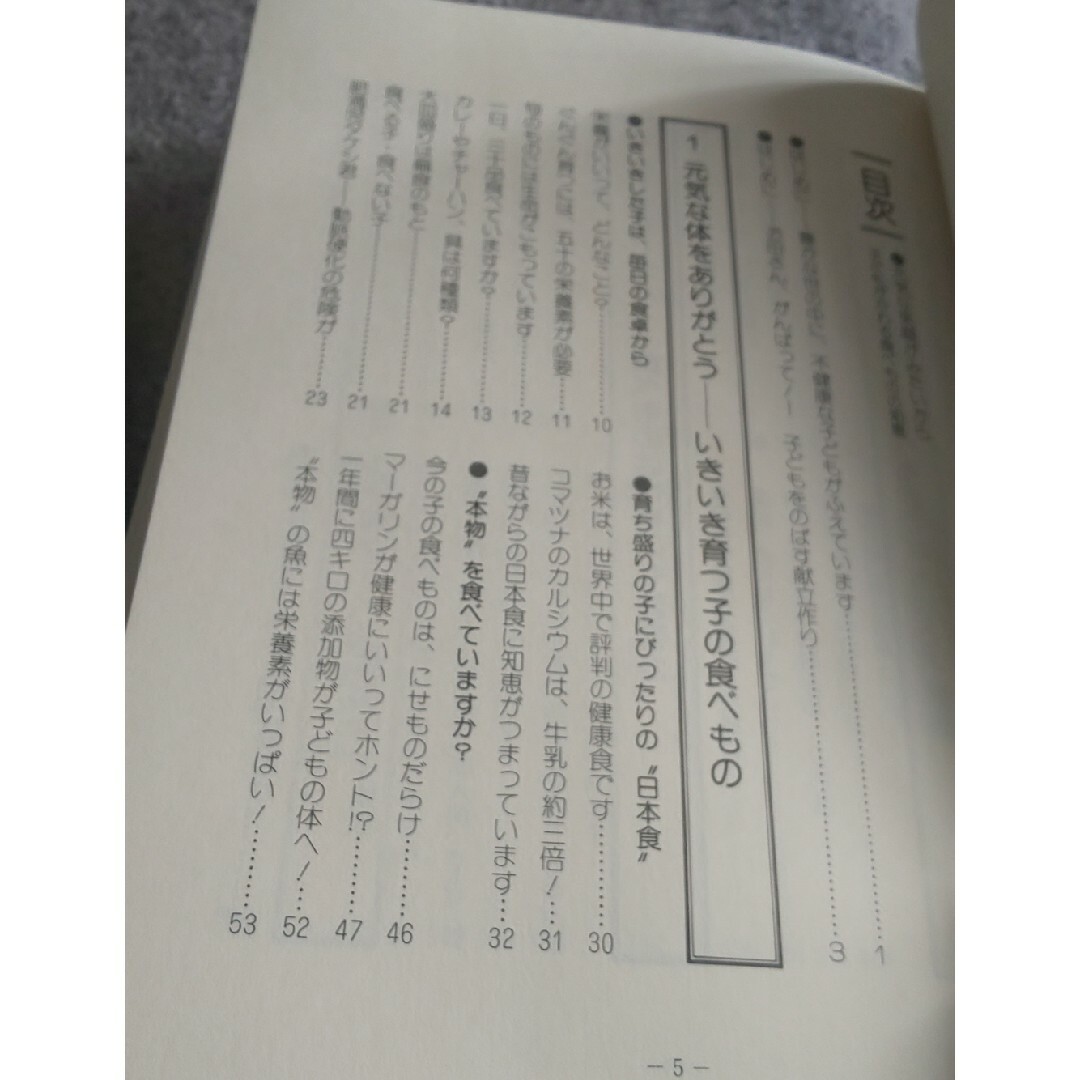 目次
●はじめに――豊かな世の中に、不健康な子どもがふえています……1
お母さん、がんばって！！ 子どもをのばす献立作り……3
1 元気な体をありがとう――いきいき育つ子の食べもの
●いきいきした子は、毎日の食卓から
栄養がいいって、どんなこと？……10
ぜんぜん育つには、五十の栄養素が必要……11
旬のものには生命がこもっています……12
一日、三十品食べていますか？……13
カレーやチャーハン、具は何種類？……14
大皿盛りは偏食のもと……21
食べる子・食べない子……21
肥満児タケシ君――動脈硬化の危険が……23
●育ち盛りの子にぴったりの〝日本食〟
お米は、世界中で評判の健康食です……30
コマツナのカルシウムは、牛乳の約三倍！……31
昔ながらの日本食に知恵がつまっています……32
●〝本物〟を食べていますか？
今の子の食べものは、にせものだらけ……46
マーガリンが健康にいいってホント!?……47
一年間に四キロの添加物が子どもの体へ！……52
〝本物〟の魚には栄養素がいっぱい！……53
－5－